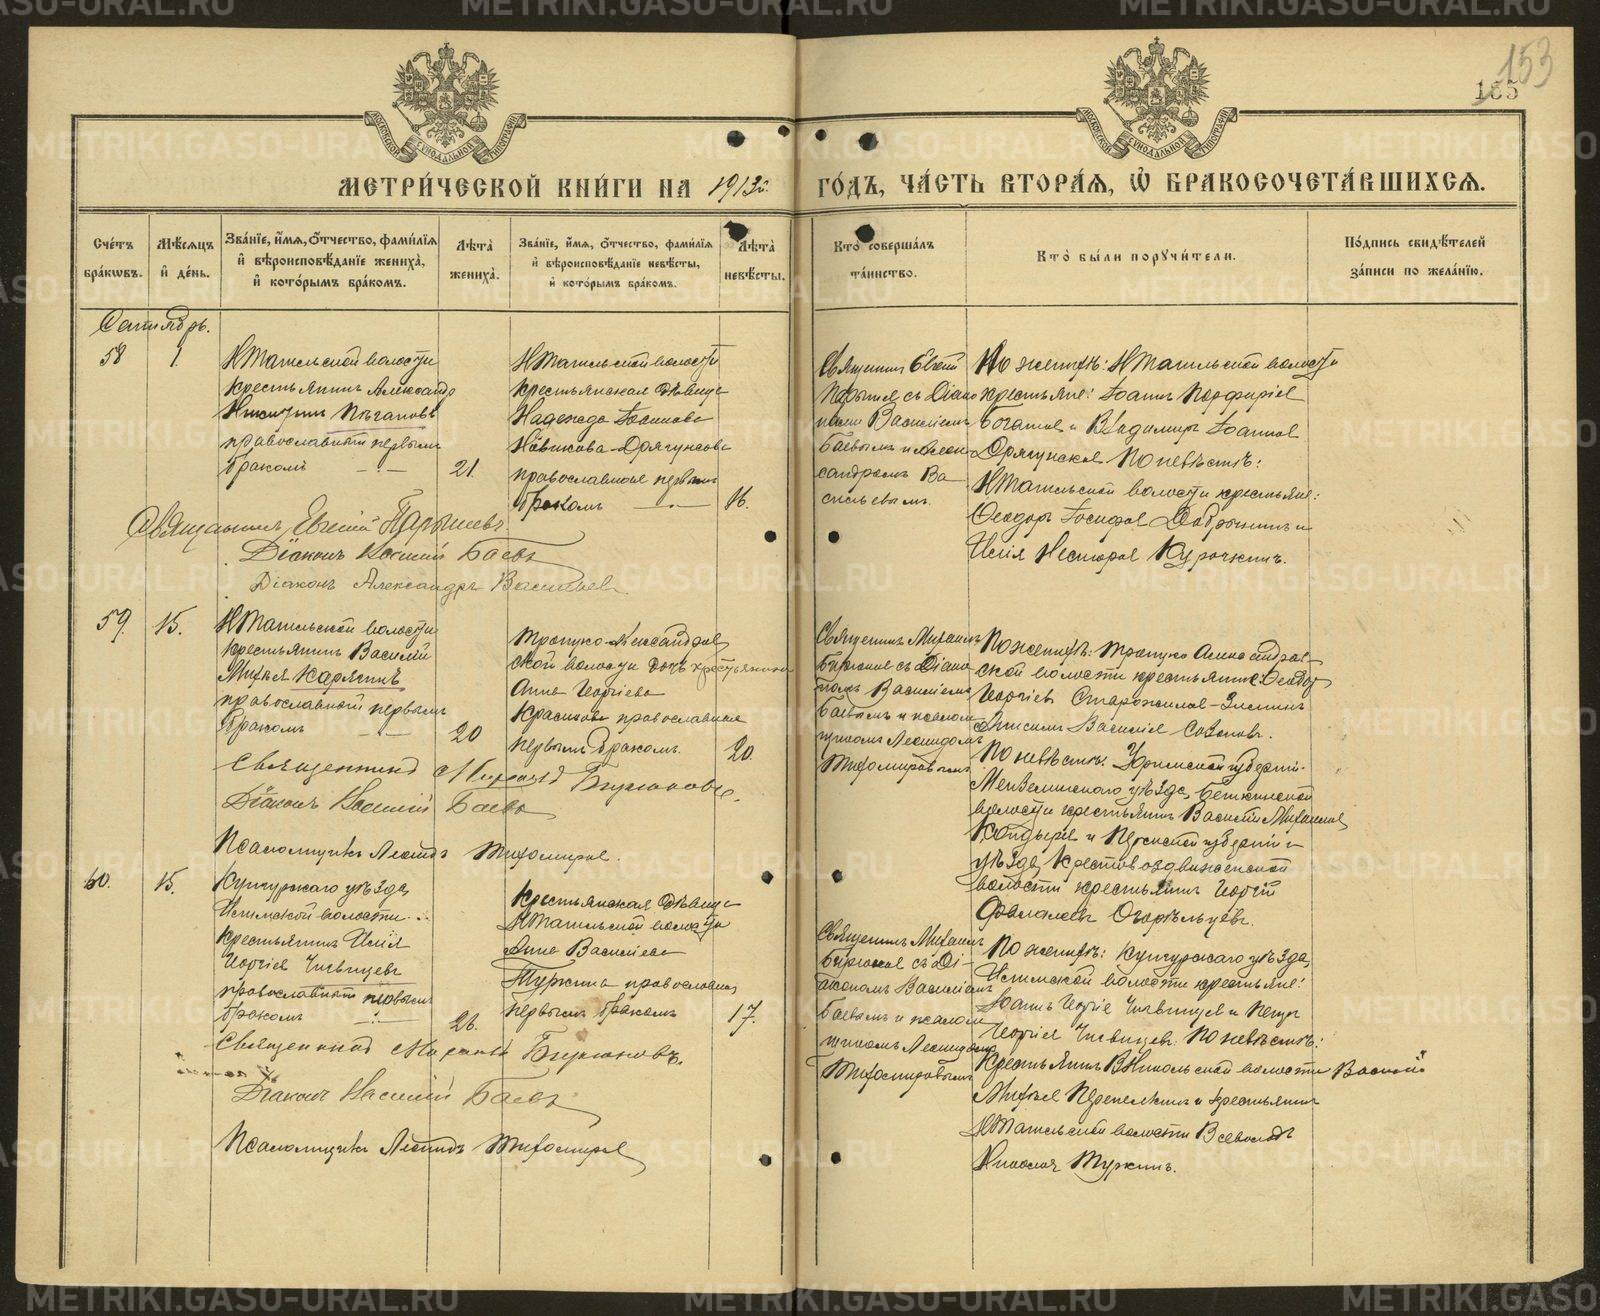 METRIKI.GASO-URAL.RU
153
185
МЕТРИ́ЧЕСКОЙ КНИ́ГИ НА 1913 г. ГО́ДЪ, ЧА́СТЬ ВТОРА́Я, Ѡ БРАКОСОЧЕТА́ВШИХСЯ.
Сче́тъ бра́кѡвъ.
Мѣ́сяцъ и҆ де́нь.
Зва́нїе, и҆́мя, ѻ҆́тчество, фами́лїя и҆ вѣроисповѣ́данїе жениха̀, и҆ кото́рымъ бра́комъ.
Лѣ́та жениха̀.
Зва́нїе, и҆́мя, ѻ҆́тчество, фами́лїя и҆ вѣроисповѣ́данїе невѣ́сты, и҆ кото́рымъ бра́комъ.
Лѣ́та невѣ́сты.
Кто̀ соверша́лъ та́инство.
Кто̀ бы́ли порꙋчи́тели.
По́дпись свидѣ́телей за́писи по жела́нїю.
Сентябрь.
58
1.
НТагильской волости
крестьянинъ Александр
Никитин Пыганов
православный первым
браком
21.
НТагильской волости
крестьянская девица
Надежда
Новикова-Дрягунова
православная первым
браком
16.
Священник Евгений
Парышев с Диако
ном Василием
Баевым и Алек
сандром Ва
сильевым.
По женихѣ: НТагильской волости
крестьяне: Iоаннъ Порфириев
Богатов и Владимиръ Iоаннов
По невѣстѣ:
НТагильской волости крестьяне:
Ѳеодоръ Iосифов и
Илiя Несторов Курочкинъ.
Священникъ Евгенiй Парышевъ.
Дiаконъ Василий Баевъ
Дiаконъ Александръ Васильев
59.
15.
НТагильской волости
крестьянин Василий
Карягинъ
православный первым
браком
20
Троицко-Александров
ской волости дочь крестьянина
Анна Георгиева
Красикова православная
первым браком.
20.
Священник Михаил
Бирюков с Диако
ном Василием
Баевым и псалом
щиком Леонидом
Тихомировым
По женихѣ: Троицко Александров-
ской волости крестьянин: Ѳеодор
Георгиев
Василия Созонов.
По невѣстѣ: Уфимской губернии
Мензелинскаго уѣзда,
волости крестьянин Василий Михаилов
и Пермской губернии и
уѣзда, Крестовоздвиженской
волости крестьянин Георгий
Огорѣльцевъ.
Священникъ Михаилъ Бирюковъ.
Дiаконъ Василий Баевъ
Псаломщикъ Леонидъ Тихомиров.
60.
15.
Кунгурскаго уѣзда,
волости
крестьянин Илия
Георгиев
православный первым
браком
26.
Крестьянская девица
НТагильской волости
Анна Василиева
Туркина православная,
первым браком
17.
Священник Михаил
Бирюков с Ди-
аконом Василием
Баевым и псалом
щиком Леонидом
Тихомировым
По женихѣ: Кунгурскаго уѣзда,
волости крестьяне:
Iоаннъ Георгие и Петр
Георгиев По невѣстѣ:
Крестьянин ВНикольской волости Василий
и крестьянин
НТагильской волости Всеволодъ
Туркинъ.
Священникъ Михаилъ Бирюковъ.
Дiаконъ Василий Баевъ
Псаломщикъ Леонидъ Тихомиров